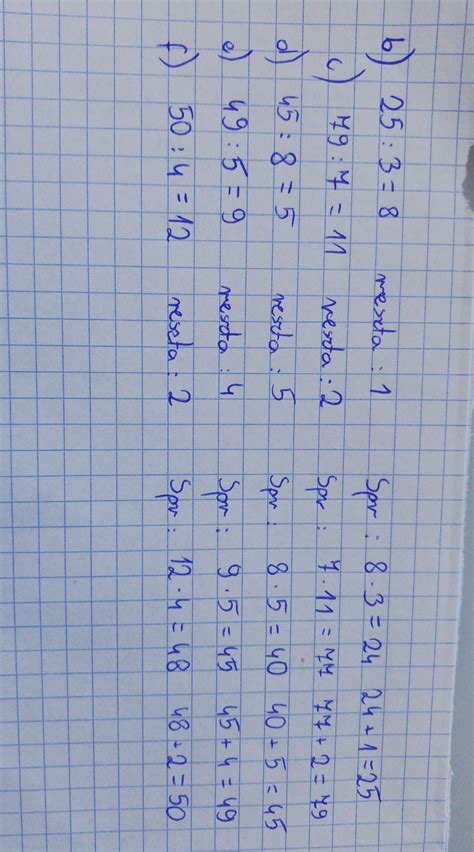 b) 25 : 3 = 8 reszta : 1 Spr : 8 · 3 = 24 24 + 1 = 25
c) 79 : 7 = 11 reszta : 2 Spr : 7 · 11 = 77 77 + 2 = 79
d) 45 : 8 = 5 reszta : 5 Spr : 8 · 5 = 40 40 + 5 = 45
e) 49 : 5 = 9 reszta : 4 Spr : 9 · 5 = 45 45 + 4 = 49
f) 50 : 4 = 12 reszta : 2 Spr : 12 · 4 = 48 48 + 2 = 50